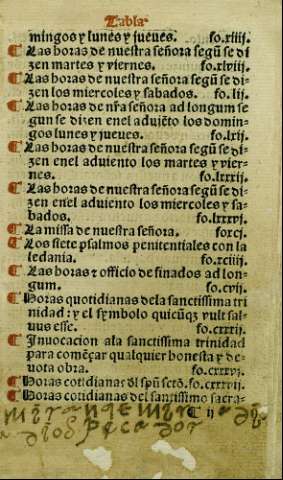 Tabla
mingos y lunes y jueues. fo.xliij.
¶ Las horas de nuestra señora segũ se di
zen martes y viernes. fo.xlviij.
¶ Las horas de nuestra señora segũ se di-
zen los miercoles y sabados. fo.lij.
¶ Las horas de nr̃a señora ad longum se
gun se dizen enel aduiẽto los domin-
gos lunes y jueues. fo.lxij.
¶ Las horas de nuestra señora segũ se di-
zen enel aduiento los martes y vier-
nes. fo.lxxxij.
¶ Las horas de nuestra señora segũ se di-
zen enel aduiento los miercoles y sa-
bados. fo.lxxxvj.
¶ La missa de nuestra señora. foxcj.
¶ Los siete psalmos penitentiales con la
ledania. fo.xciiij.
¶ Las horas ⁊ officio de finados ad lon-
gum. fo.cvij.
¶ Horas quotidianas dela sanctissima tri
nidad: y el symbolo quicũqꝫ vult sal-
uus esse. fo.cxxxij.
¶ Inuocacion ala sanctissima trinidad
para comẽçar qualquier honesta y de-
uota obra. fo.cxxxvj.
¶ Horas cotidianas dl spũ sctõ. fo.cxxxvij
¶ Horas cotidianas del santissimo sacra-
¶ ij
pecador